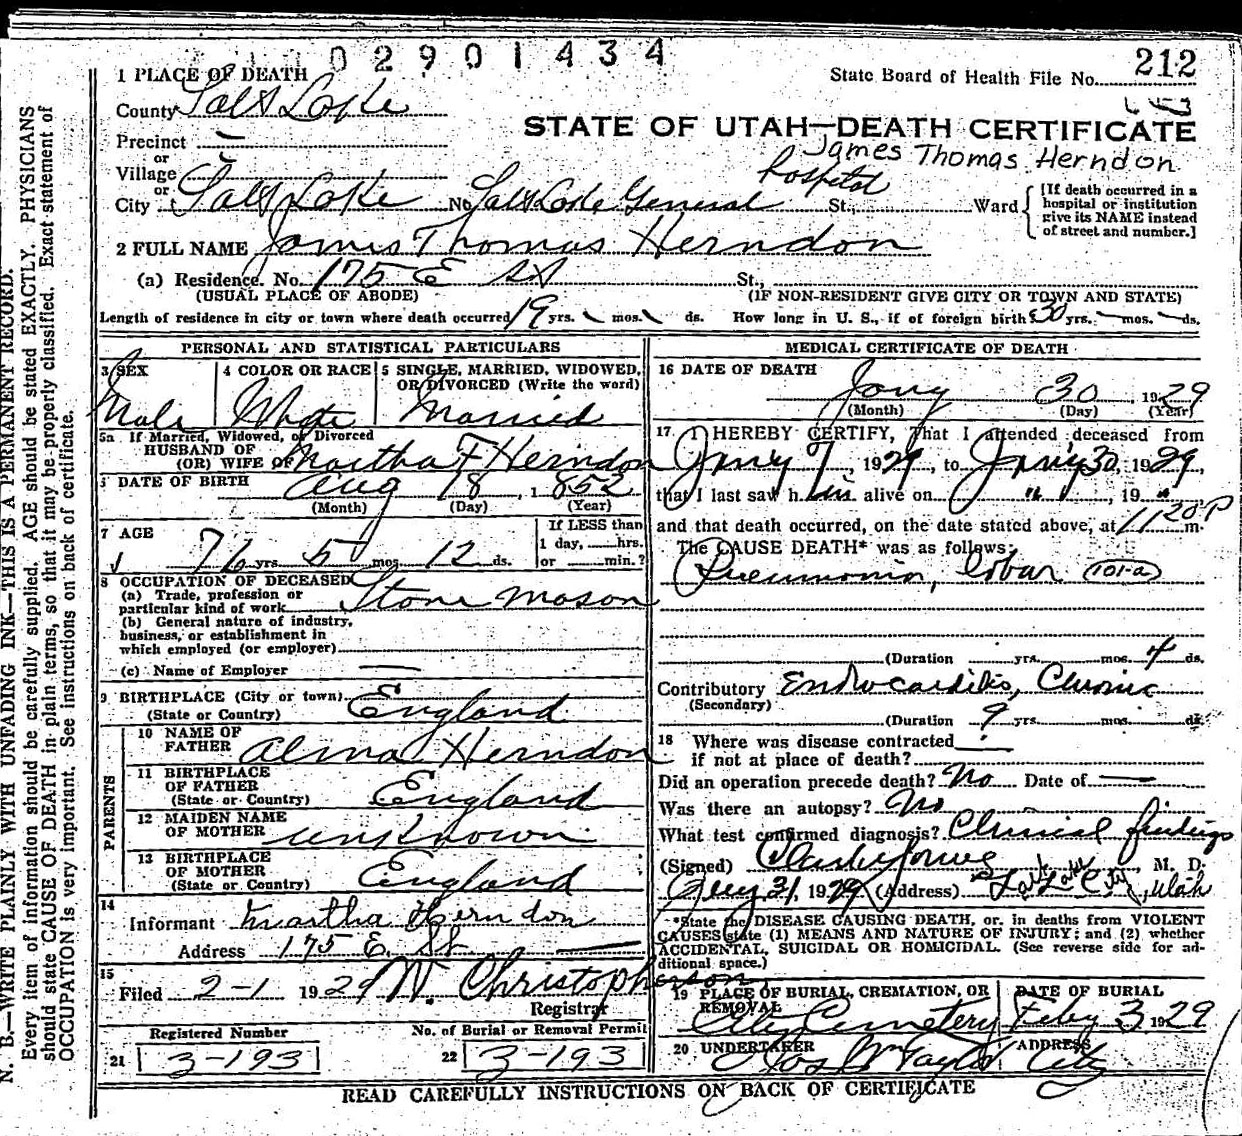 02901434
212
1 PLACE OF DEATH
State Board of Health File No.
County Salt Lake
STATE OF UTAH—DEATH CERTIFICATE
Precinct —
James Thomas Herndon
or
Village
or
City Salt Lake No. Salt Lake General Hospital St., Ward
[If death occurred in a
hospital or institution
give its NAME instead
of street and number.]
2 FULL NAME James Thomas Herndon
(a) Residence. No. 175 E St St.,
(USUAL PLACE OF ABODE) (IF NON-RESIDENT GIVE CITY OR TOWN AND STATE)
Length of residence in city or town where death occurred 19 yrs. mos. ds. How long in U. S., if of foreign birth? 30 yrs. — mos. — ds.
PERSONAL AND STATISTICAL PARTICULARS
3 SEX
Male
4 COLOR OR RACE
White
5 SINGLE, MARRIED, WIDOWED,
OR DIVORCED (Write the word)
Married
5a If Married, Widowed, or Divorced
HUSBAND OF
(OR) WIFE OF Martha F Herndon
DATE OF BIRTH Aug 18, 1852
(Month) (Day) (Year)
7 AGE
76 yrs 5 mos 12 ds.
If LESS than
1 day, hrs.
or min.?
8 OCCUPATION OF DECEASED
(a) Trade, profession or
particular kind of work Stone mason
(b) General nature of industry,
business, or establishment in
which employed (or employer)
(c) Name of Employer —
9 BIRTHPLACE (City or town)
(State or Country) England
PARENTS
10 NAME OF
FATHER Alma Herndon
11 BIRTHPLACE
OF FATHER
(State or Country) England
12 MAIDEN NAME
OF MOTHER unknown
13 BIRTHPLACE
OF MOTHER
(State or Country) England
14
Informant Martha Herndon
Address 175 E. St.
15
Filed 2-1 1929 W. Christopherson
Registrar
Registered Number
21 3-193
No. of Burial or Removal Permit
22 3-193
MEDICAL CERTIFICATE OF DEATH
16 DATE OF DEATH
Jany 30 1929
(Month) (Day) (Year)
17 I HEREBY CERTIFY, That I attended deceased from
Jany 7, 1929, to Jany 30, 1929,
that I last saw him alive on " ", 19 "
and that death occurred, on the date stated above, at 11 20 P m.
The CAUSE DEATH* was as follows:
Pneumonia, lobar (101-a)
(Duration yrs. mos. 4 ds.
Contributory Endocarditis, Chronic
(Secondary)
(Duration 9 yrs. mos. ds.
18 Where was disease contracted
if not at place of death?
Did an operation precede death? No Date of —
Was there an autopsy? No
What test confirmed diagnosis? Clinical findings
(Signed) M. D.
Jany 31, 1929 (Address) Salt Lake City, Utah
*State the DISEASE CAUSING DEATH, or, in deaths from VIOLENT
CAUSES state (1) MEANS AND NATURE OF INJURY; and (2) whether
ACCIDENTAL, SUICIDAL OR HOMICIDAL. (See reverse side for ad-
ditional space.)
19 PLACE OF BURIAL, CREMATION, OR
REMOVAL
City Cemetery
DATE OF BURIAL
Feby 3 1929
20 UNDERTAKER
Jos Wm Taylor
ADDRESS
City
READ CAREFULLY INSTRUCTIONS ON BACK OF CERTIFICATE
N. B.—WRITE PLAINLY WITH UNFADING INK—THIS IS A PERMANENT RECORD.
Every item of information should be carefully supplied. AGE should be stated EXACTLY. PHYSICIANS
should state CAUSE OF DEATH in plain terms, so that it may be properly classified. Exact statement of
OCCUPATION is very important. See instructions on back of certificate.